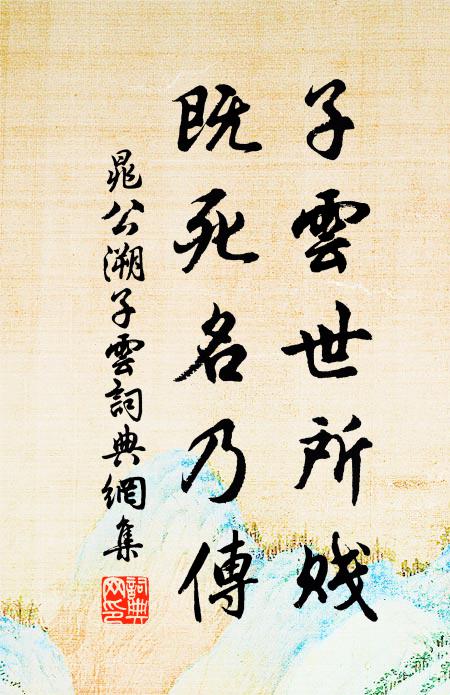 子雲世所賤
既死名乃傳
晁公溯子雲詞典網集
詞典網印